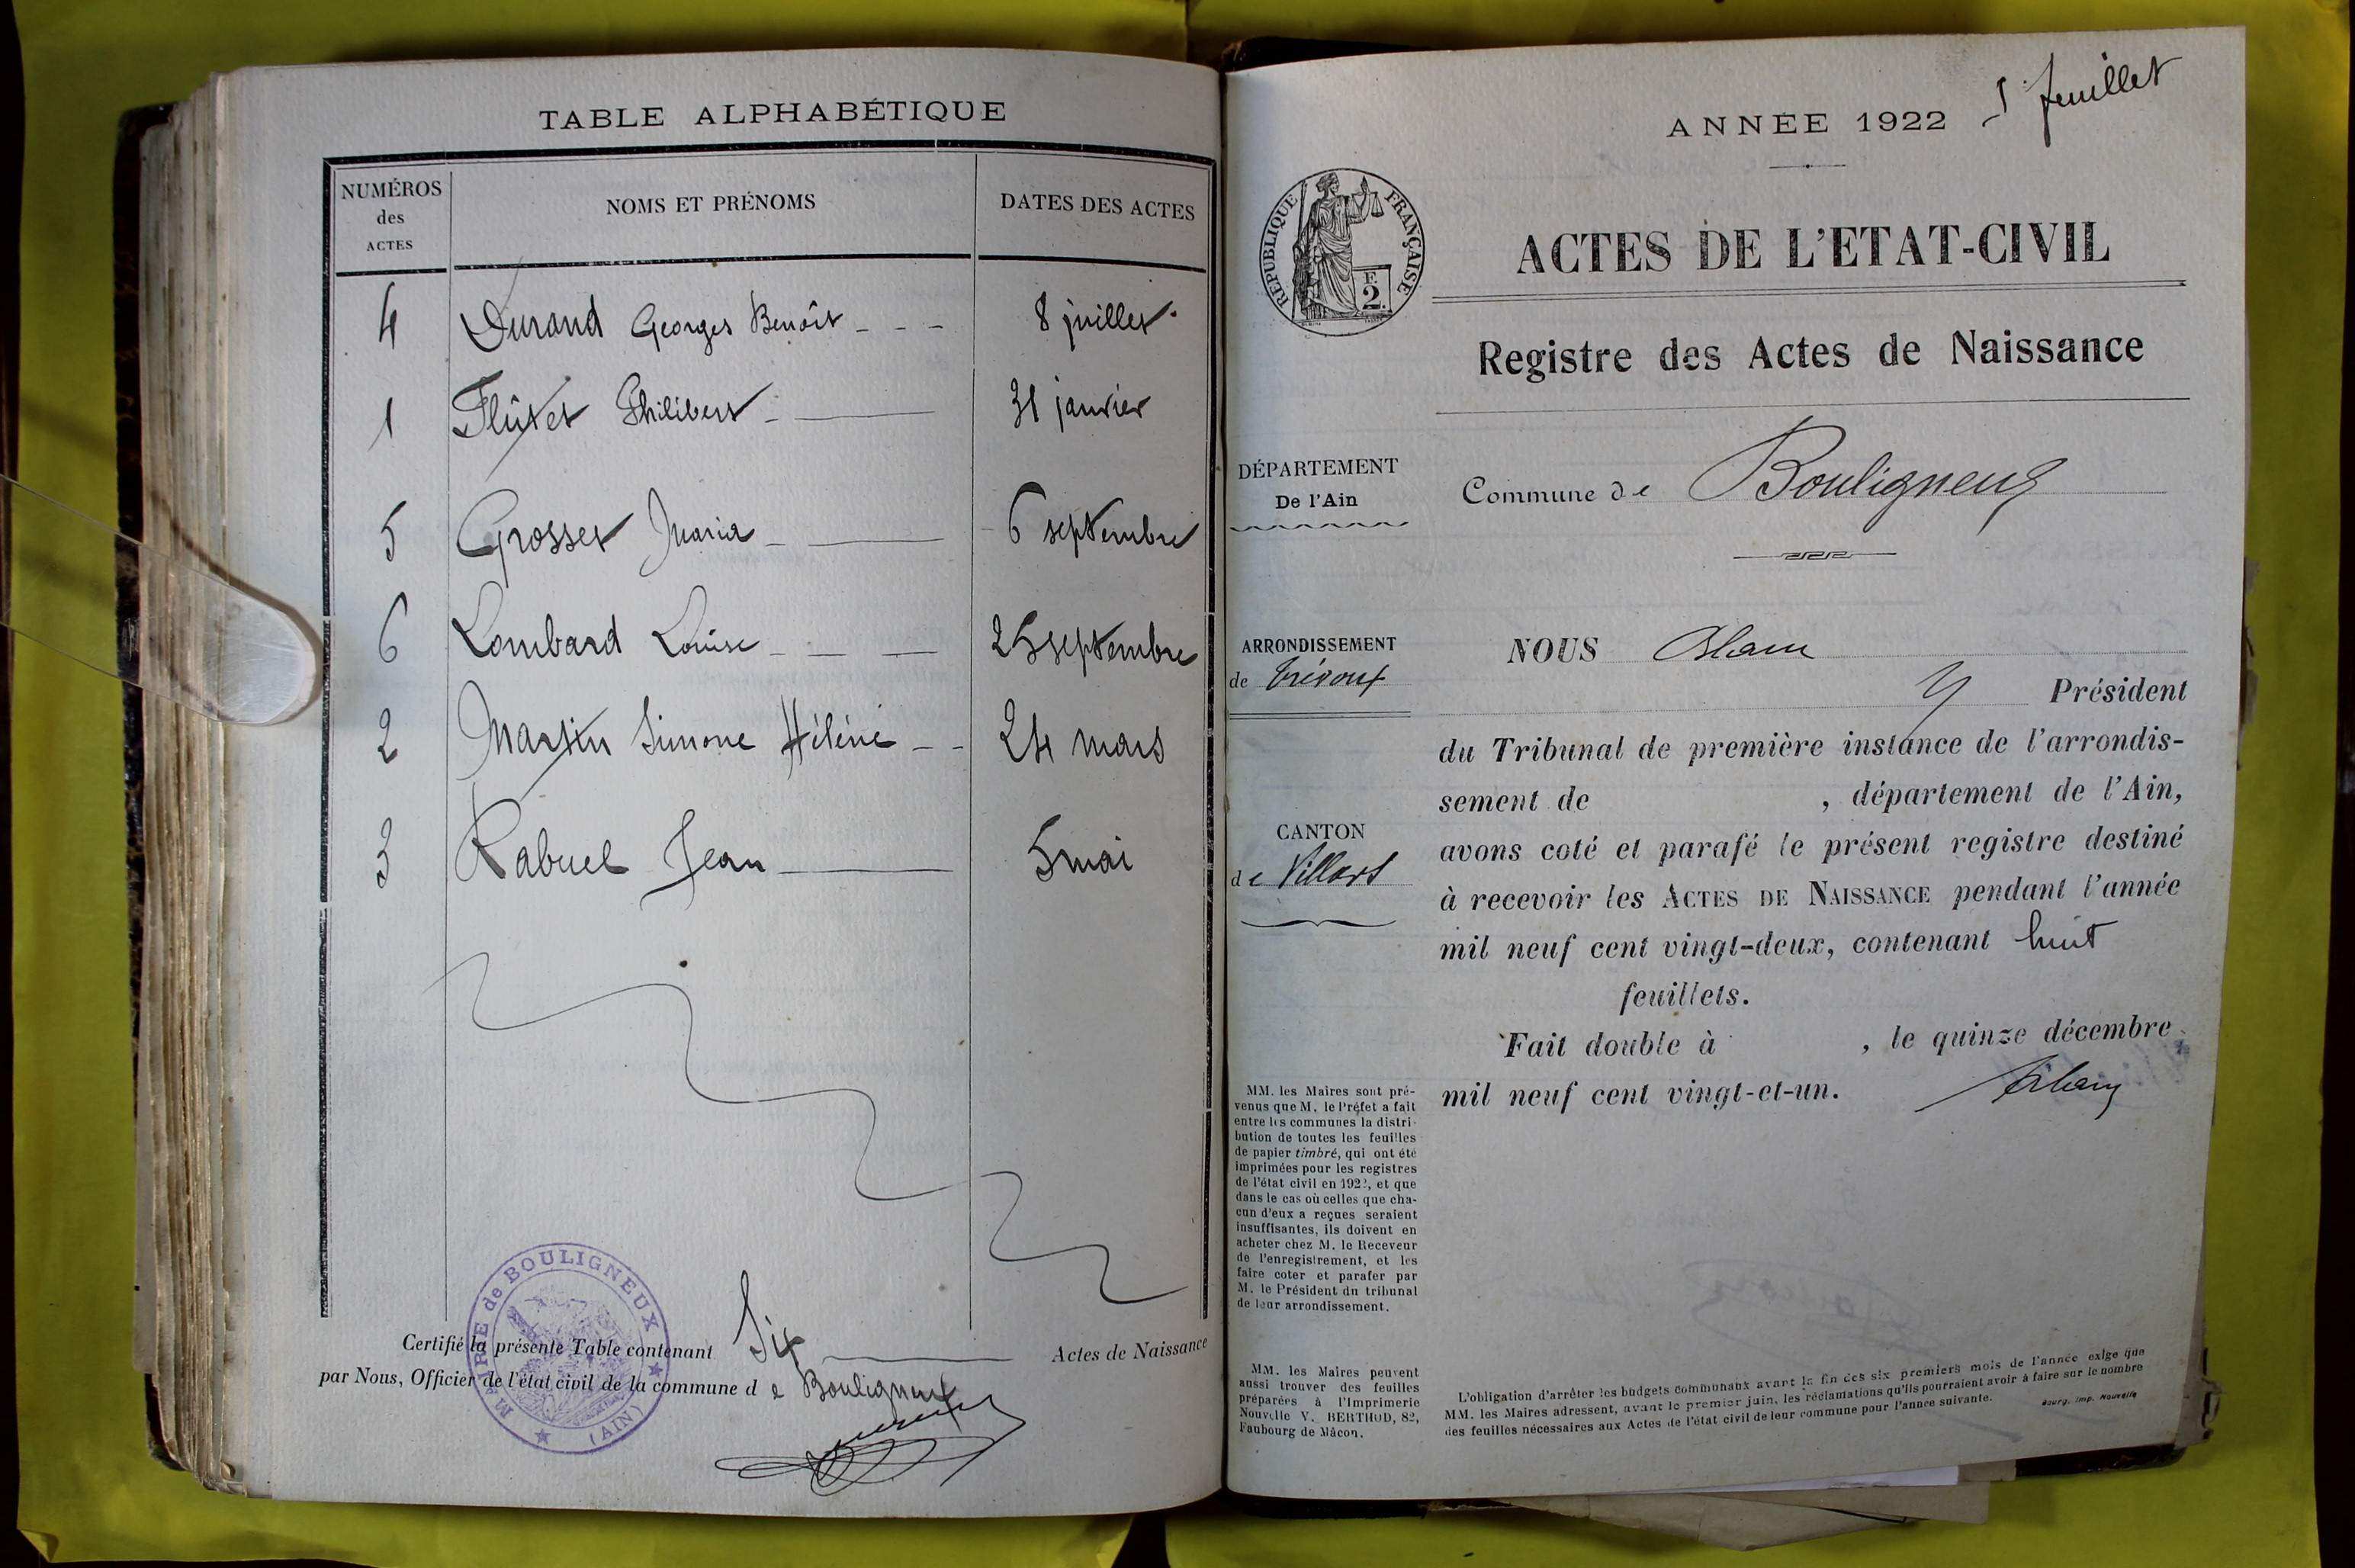 TABLE ALPHABÉTIQUE
NUMÉROS des ACTES
NOMS ET PRÉNOMS
DATES DES ACTES
4 Durand Georges Benoît 8 juillet
1 Flûtet Philibert 31 janvier
5 Grosset Maria 6 septembre
6 Lombard Louise 25 septembre
2 Martin Simone Hélène 24 mars
3 Rabuel Jean 5 mai
MAIRIE de BOULIGNEUX
(AIN)
Certifié la présente Table contenant Six Actes de Naissance
par Nous, Officier de l'état civil de la commune de Bouligneux
1 feuillet
ANNÉE 1922
RÉPUBLIQUE FRANÇAISE
F.
2
ACTES DE L'ETAT-CIVIL
Registre des Actes de Naissance
DÉPARTEMENT
De l'Ain
Commune de Bouligneux
ARRONDISSEMENT
de Trévoux
NOUS
Président
du Tribunal de première instance de l'arrondis-
sement de , département de l'Ain,
CANTON
de Villars
avons coté et parafé le présent registre destiné
à recevoir les ACTES DE NAISSANCE pendant l'année
mil neuf cent vingt-deux, contenant huit
feuillets.
Fait double à , le quinze décembre
mil neuf cent vingt-et-un.
MM. les Maires sont pré-
venus que M. le Préfet a fait
entre les communes la distri-
bution de toutes les feuilles
de papier timbré, qui ont été
imprimées pour les registres
de l'état civil en 1922, et que
dans le cas où celles que cha-
cun d'eux a reçues seraient
insuffisantes, ils doivent en
acheter chez M. le Receveur
de l'enregistrement, et les
faire coter et parafer par
M. le Président du tribunal
de leur arrondissement.
MM. les Maires peuvent
aussi trouver des feuilles
préparées à l'Imprimerie
Nouvelle V. BERTHOD, 82,
Faubourg de Mâcon.
L'obligation d'arrêter les budgets communaux avant la fin des six premiers mois de l'année exige que
MM. les Maires adressent, avant le premier juin, les réclamations qu'ils pourraient avoir à faire sur le nombre
des feuilles nécessaires aux Actes de l'état civil de leur commune pour l'année suivante.
Bourg. Imp. Nouvelle